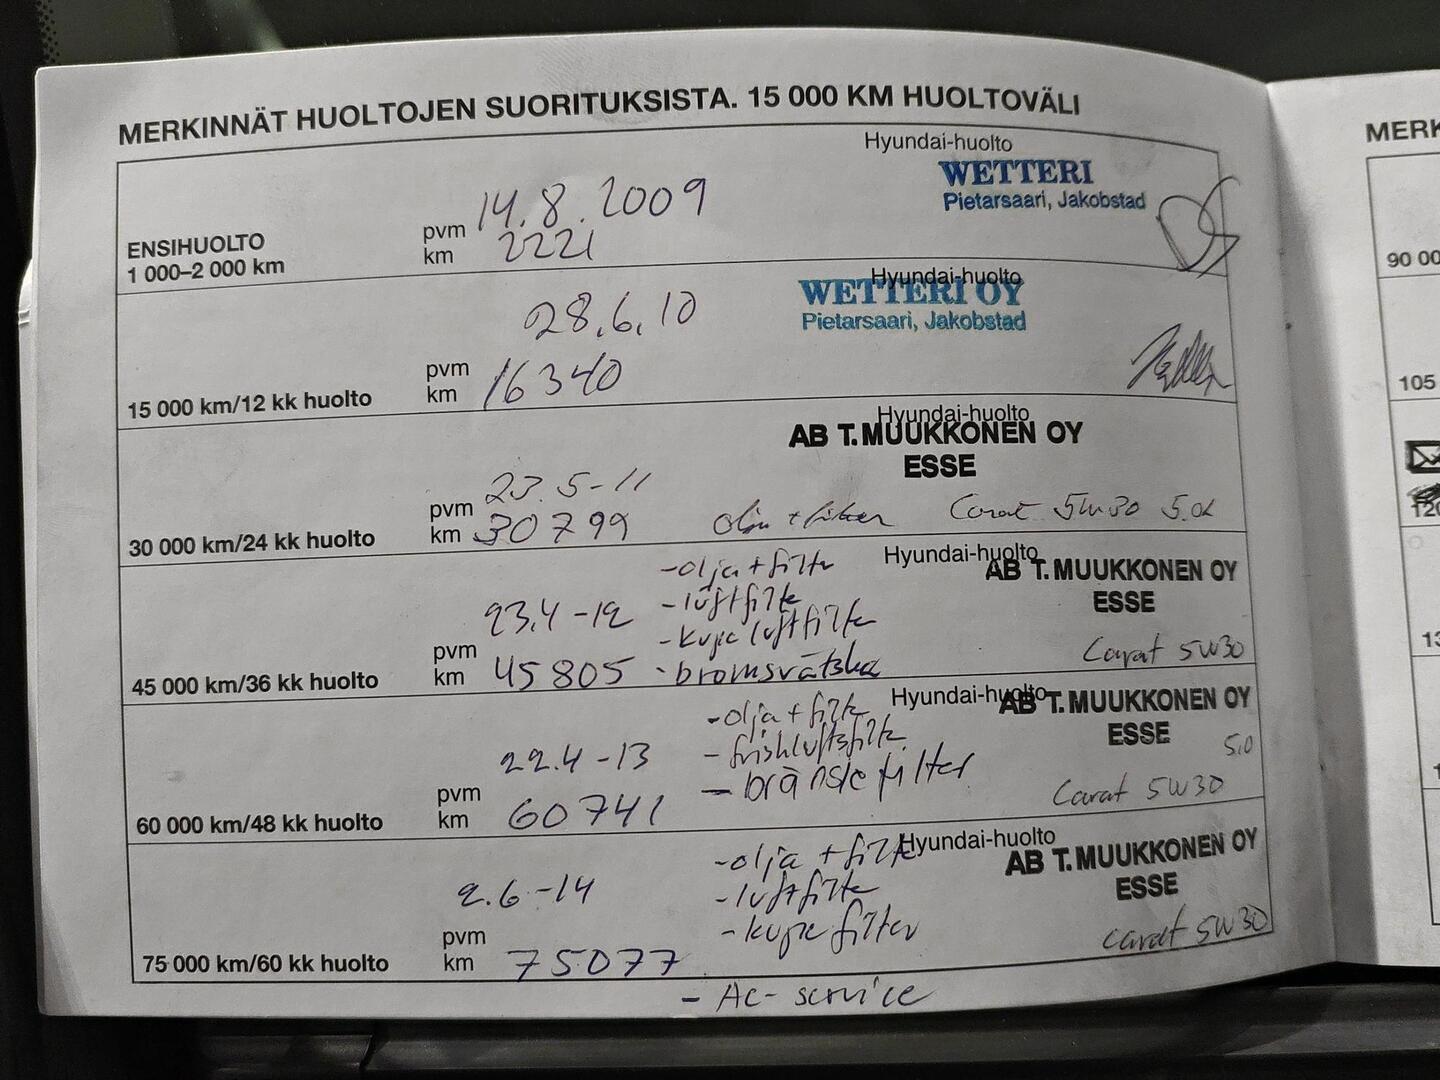 MERKINNÄT HUOLTOJEN SUORITUKSISTA. 15 000 KM HUOLTOVÄLI
Hyundai-huolto
WETTERI
Pietarsaari, Jakobstad
ENSIHUOLTO
1 000–2 000 km
pvm 14.8.2009
km 2221
Hyundai-huolto
WETTERI OY
Pietarsaari, Jakobstad
28.6.10
15 000 km/12 kk huolto
pvm
km 16340
Hyundai-huolto
AB T. MUUKKONEN OY
ESSE
30 000 km/24 kk huolto
pvm 23.5-11
km 30799
olja + filter Carat 5W30 5.0L
Hyundai-huolto
AB T. MUUKKONEN OY
ESSE
-olja + filter
-luftfilte
-kupe luftfilte
-bromsvätska
23.4-12
45 000 km/36 kk huolto
pvm
km 45805
Carat 5W30
Hyundai-huolto
AB T. MUUKKONEN OY
ESSE
-olja + filte
-friskluftsfilte
-bränsle filter
22.4-13
60 000 km/48 kk huolto
pvm
km 60741
5,0
Carat 5W30
Hyundai-huolto
AB T. MUUKKONEN OY
ESSE
-olja + filte
-luftfilte
-kupe filter
2.6-14
75 000 km/60 kk huolto
pvm
km 75077
Carat 5W30
- AC-service
MERK
90 00
105
120
13
1